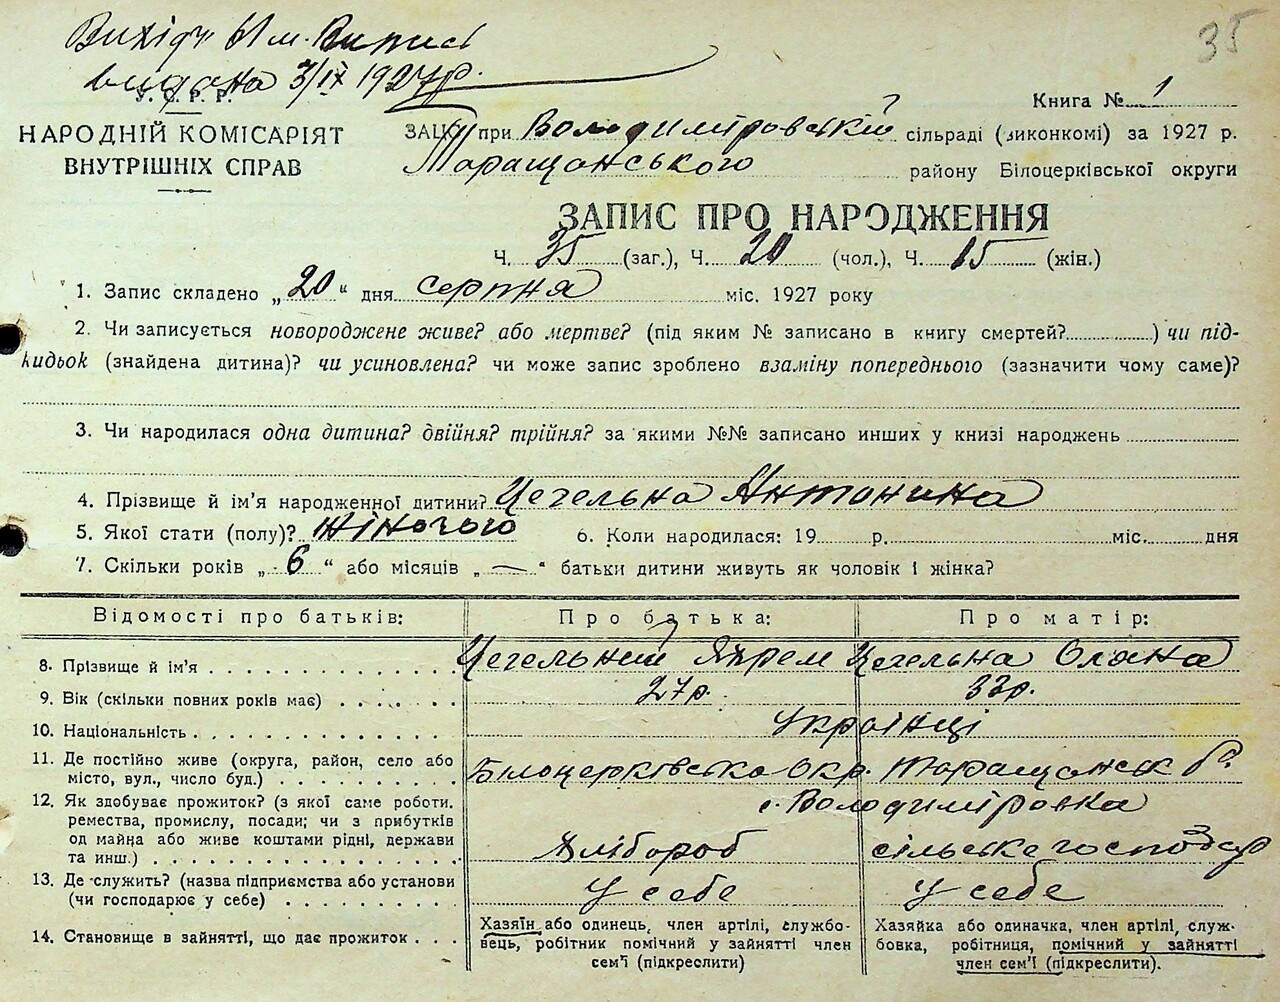 35
Вихідн 61 м. Випис
видана 3/IX 1927 р.
У.С.Р.Р.
НАРОДНІЙ КОМІСАРІЯТ
ВНУТРІШНІХ СПРАВ
Книга № 1
ЗАЦС при Володимирівській сільраді (виконкомі) за 1927 р.
Таращанського району Білоцерківської округи
ЗАПИС ПРО НАРОДЖЕННЯ
Ч. 35 (заг.), Ч. 20 (чол.), Ч. 15 (жін.)
1. Запис складено „20“ дня серпня міс. 1927 року
2. Чи записується новороджене живе? або мертве? (під яким № записано в книгу смертей?) чи під-
кидьок (знайдена дитина)? чи усиновлена? чи може запис зроблено взаміну попереднього (зазначити чому саме)?
3. Чи народилася одна дитина? двійня? трійня? за якими №№ записано инших у книзі народжень
4. Прізвище й ім'я народженної дитини? Цегельна Антонина
5. Якої стати (полу)? жіночого 6. Коли народилася: 19 р. міс. дня
7. Скільки років „6“ або місяців „—“ батьки дитини живуть як чоловік і жінка?
Відомості про батьків: Про батька: Про матір:
8. Прізвище й ім'я Цегельний Яхрем Цегельна Оляна
9. Вік (скільки повних років має) 27 р. 33 р.
10. Національність Українці
11. Де постійно живе (округа, район, село або
місто, вул., число буд.) Білоцерківська Окр. Таращанськ р.
с. Володимирівка
12. Як здобуває прожиток? (з якої саме роботи.
ремества, промислу, посади; чи з прибутків
од майна або живе коштами рідні, держави
та инш.) Хлібороб сільське господар
13. Де служить? (назва підприємства або установи
(чи господарює у себе) У себе У себе
14. Становище в зайнятті, що дає прожиток
Хазяїн або одинець, член артілі, службо-
вець, робітник помічний у зайнятті член
сем'ї (підкреслити)
Хазяйка або одиначка, член артілі, служ-
бовка, робітниця, помічний у зайнятті
член сем'ї (підкреслити).